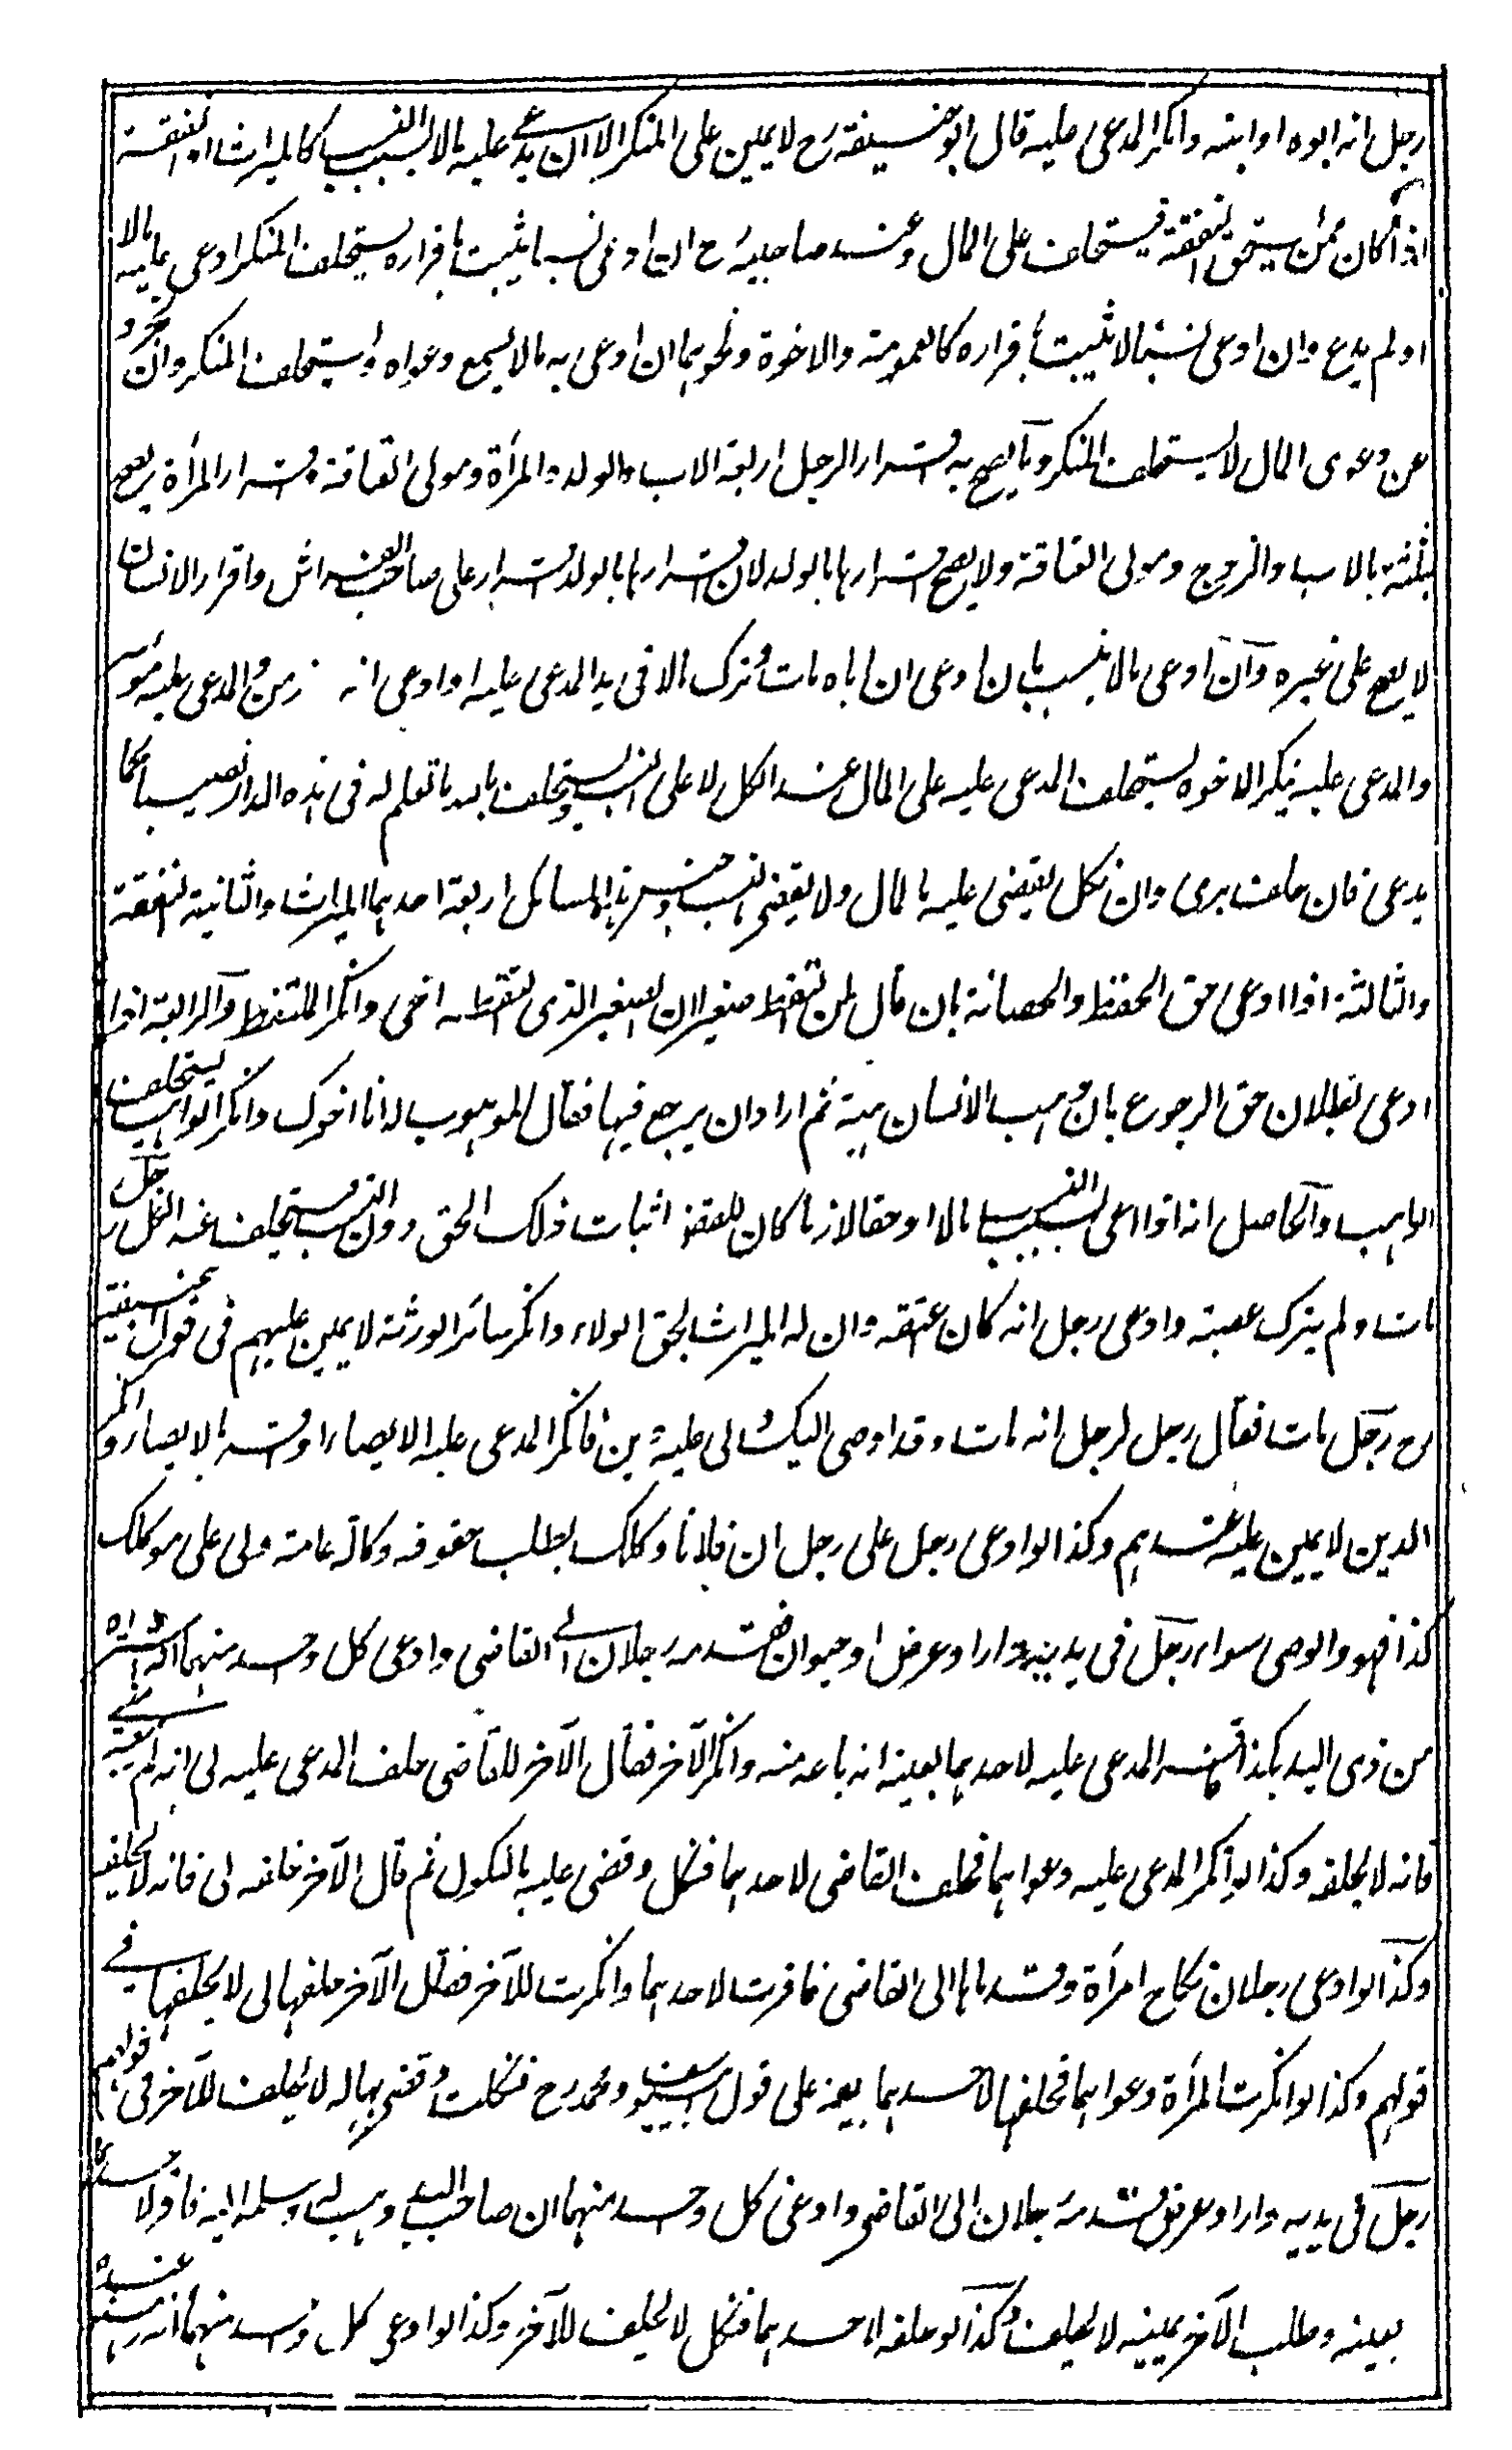 رجل انه ابوه او ابنه وانكر المدعى عليه قال ابو حنيفة رح لا يمين على المنكر الا ان يدعى عليه مالا بسبب النسب كالميراث او النفقة
اذا كان ممن يستحق النفقة فيستحلف على المال وعند صاحبيه رح ان ادعى نسبا يثبت باقراره يستحلف المنكر ادعى عليه مالا
او لم يدع وان ادعى نسبا لا يثبت باقراره كالعمومة والاخوة ونحوهما ان ادعى به مالا يسمع دعواه ويستحلف المنكر وان جرد
عن دعوى المال لا يستحلف المنكر وما يصح به اقرار الرجل اربعة الاب والولد والمرأة ومولى العتاقة واقرار المرأة يصح
بثلثة بالاب والزوج ومولى العتاقة ولا يصح اقرارها بالولد لان اقرارها بالولد اقرار على صاحب الفراش واقرار الانسان
لا يصح على غيره وان ادعى مالا بنسب بان ادعى ان اباه مات وترك مالا فى يد المدعى عليه او ادعى انه زمن والمدعى عليه موسر
والمدعى عليه ينكر الاخوة يستحلف المدعى عليه على المال عند الكل لا على النسب ويحلف بالله ما تعلم له فى هذه الدار نصيبا كما
يدعى فان حلف برى وان نكل يقضى عليه بالمال ولا يقضى بالنسب وجنس هذه المسائل اربعة احدها الميراث والثانية النفقة
والثالثة اذا ادعى حق الحفظ والحضانة بان قال لمن التقط صغيرا ان الصغير الذى التقطته اخى وانكر الملتقط والرابعة اذا
ادعى بطلان حق الرجوع بان وهب لانسان هبة ثم اراد ان يرجع فيها فقال الموهوب له انا اخوك وانكر الواهب يستحلف
الواهب والحاصل انه اذا ادعى بسبب النسب مالا او حقا لازما كان المقصود اثبات ذلك الحق دون النسب يستحلف عند الكل رجل
مات ولم يترك عصبة وادعى رجل انه كان عتقه وان له الميراث بحق الولاء وانكر سائر الورثة لا يمين عليهم فى قول ابيحنيفة
رح رجل مات فقال رجل لرجل انه مات وقد اوصى اليك ولى عليه دين فانكر المدعى عليه الايصاء او اقر بالايصاء وانكر
الدين لا يمين عليه عندهم وكذا لو ادعى رجل على رجل ان فلانا وكلك بطلب حقوقه وكالة عامة ولى على موكلك
كذا فهو والوصى سواء رجل فى يديه دار او عرض او حيوان فقدمه رجلان الى القاضى وادعى كل واحد منهما انه اشتراه
من ذى اليد بكذا فاقر المدعى عليه لاحدهما بعينه انه باعه منه وانكر الآخر فقال الآخر للقاضى حلف المدعى عليه لى انه لم يبعه منى
فانه لا يحلفه وكذا لو انكر المدعى عليه دعواهما فحلف القاضى لاحدهما فنكل وقضى عليه بالنكول ثم قال الآخر حلفه لى فانه لا يحلفه
وكذا لو ادعى رجلان نكاح امرأة وقدماها الى القاضى فاقرت لاحدهما وانكرت للآخر فقال الآخر حلفها لى لا يحلفها فى
قولهم وكذا لو انكرت المرأة دعواهما فحلفها لاحدهما بعينه على قول ابى يوسف ومحمد رح فنكلت وقضى بها له لا يحلف للآخر فى قولهم
رجل فى يديه دار او عرض قدمه رجلان الى القاضى وادعى كل واحد منهما ان صاحب اليد وهبه له وسلمه اليه فاقر لاحدهما
بعينه وطلب الآخر يمينه لا يحلف وكذا لو حلفه لاحدهما فنكل لا يحلف للآخر وكذا لو ادعى كل واحد منهما انه رهنه عنده